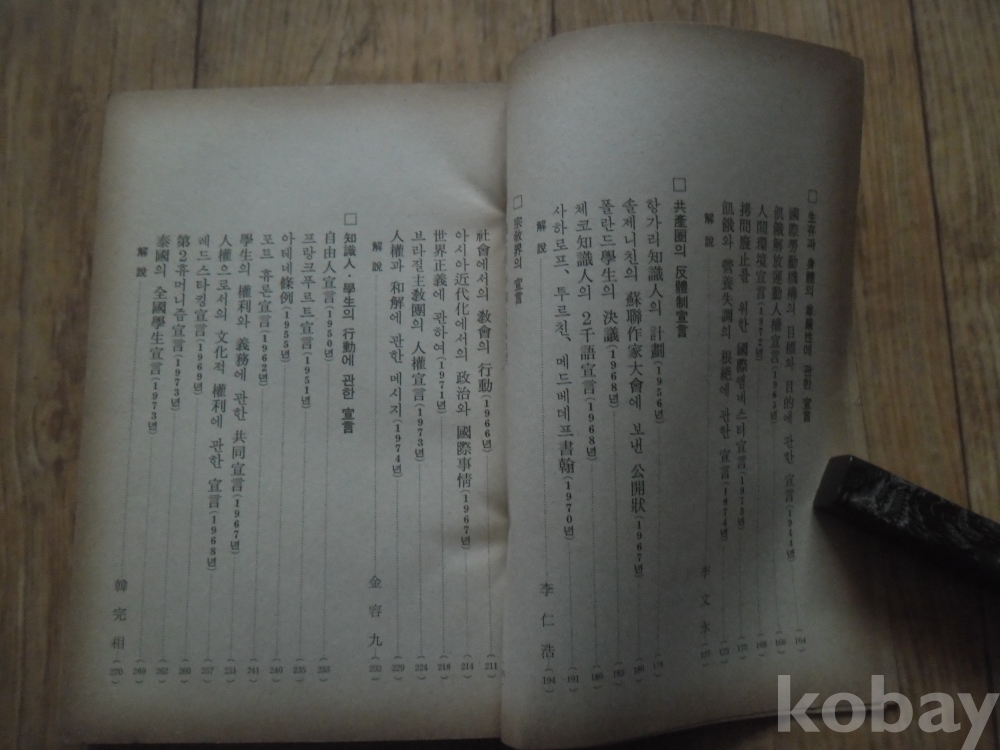 □ 生存과 身體의 에 관한 宣言
國際勞動機構의 目標와 目的에 관한 宣言(1944년) (164)
飢餓解放運動人權宣言(1963년)
人間環境宣言(1972년) (168)
拷問廢止를 위한 國際앰네스티宣言(1973년)
飢餓와 營養失調의 根絶에 관한 宣言(1974년)
解說 李文永
□ 共產圈의 反體制宣言
항가리 知識人의 計劃(1956년)
솔제니친의 蘇聯作家大會에 보낸 公開狀(1967년)
폴란드 學生의 決議(1968년)
체코 知識人의 2千語宣言(1968년)
사하로프, 투르친, 메드베데프書翰(1970년) (191)
解說 李仁浩 (194)
□ 宗敎界의 宣言
社會에서의 敎會의 行動(1966년) (211)
아시아近代化에서의 政治와 國際事情(1967년) (214)
世界正義에 관하여(1971년) (218)
브라질主敎團의 人權宣言(1973년) (224)
人權과 和解에 관한 메시지(1974년) (229)
解說 金容九 (232)
□ 知識人·學生의 行動에 관한 宣言
自由人宣言(1950년)
프랑크푸르트宣言(1951년)
아테네條例(1955년)
포트 휴론宣言(1962년) (246)
學生의 權利와 義務에 관한 共同宣言(1967년) (241)
人權으로서의 文化的 權利에 관한 宣言(1968년)
레드스타킹宣言(1969년) (257)
第2휴머니즘宣言(1973년) (260)
泰國의 全國學生宣言(1973년) (262)
解說 (269)
韓完相 (270)
kobay